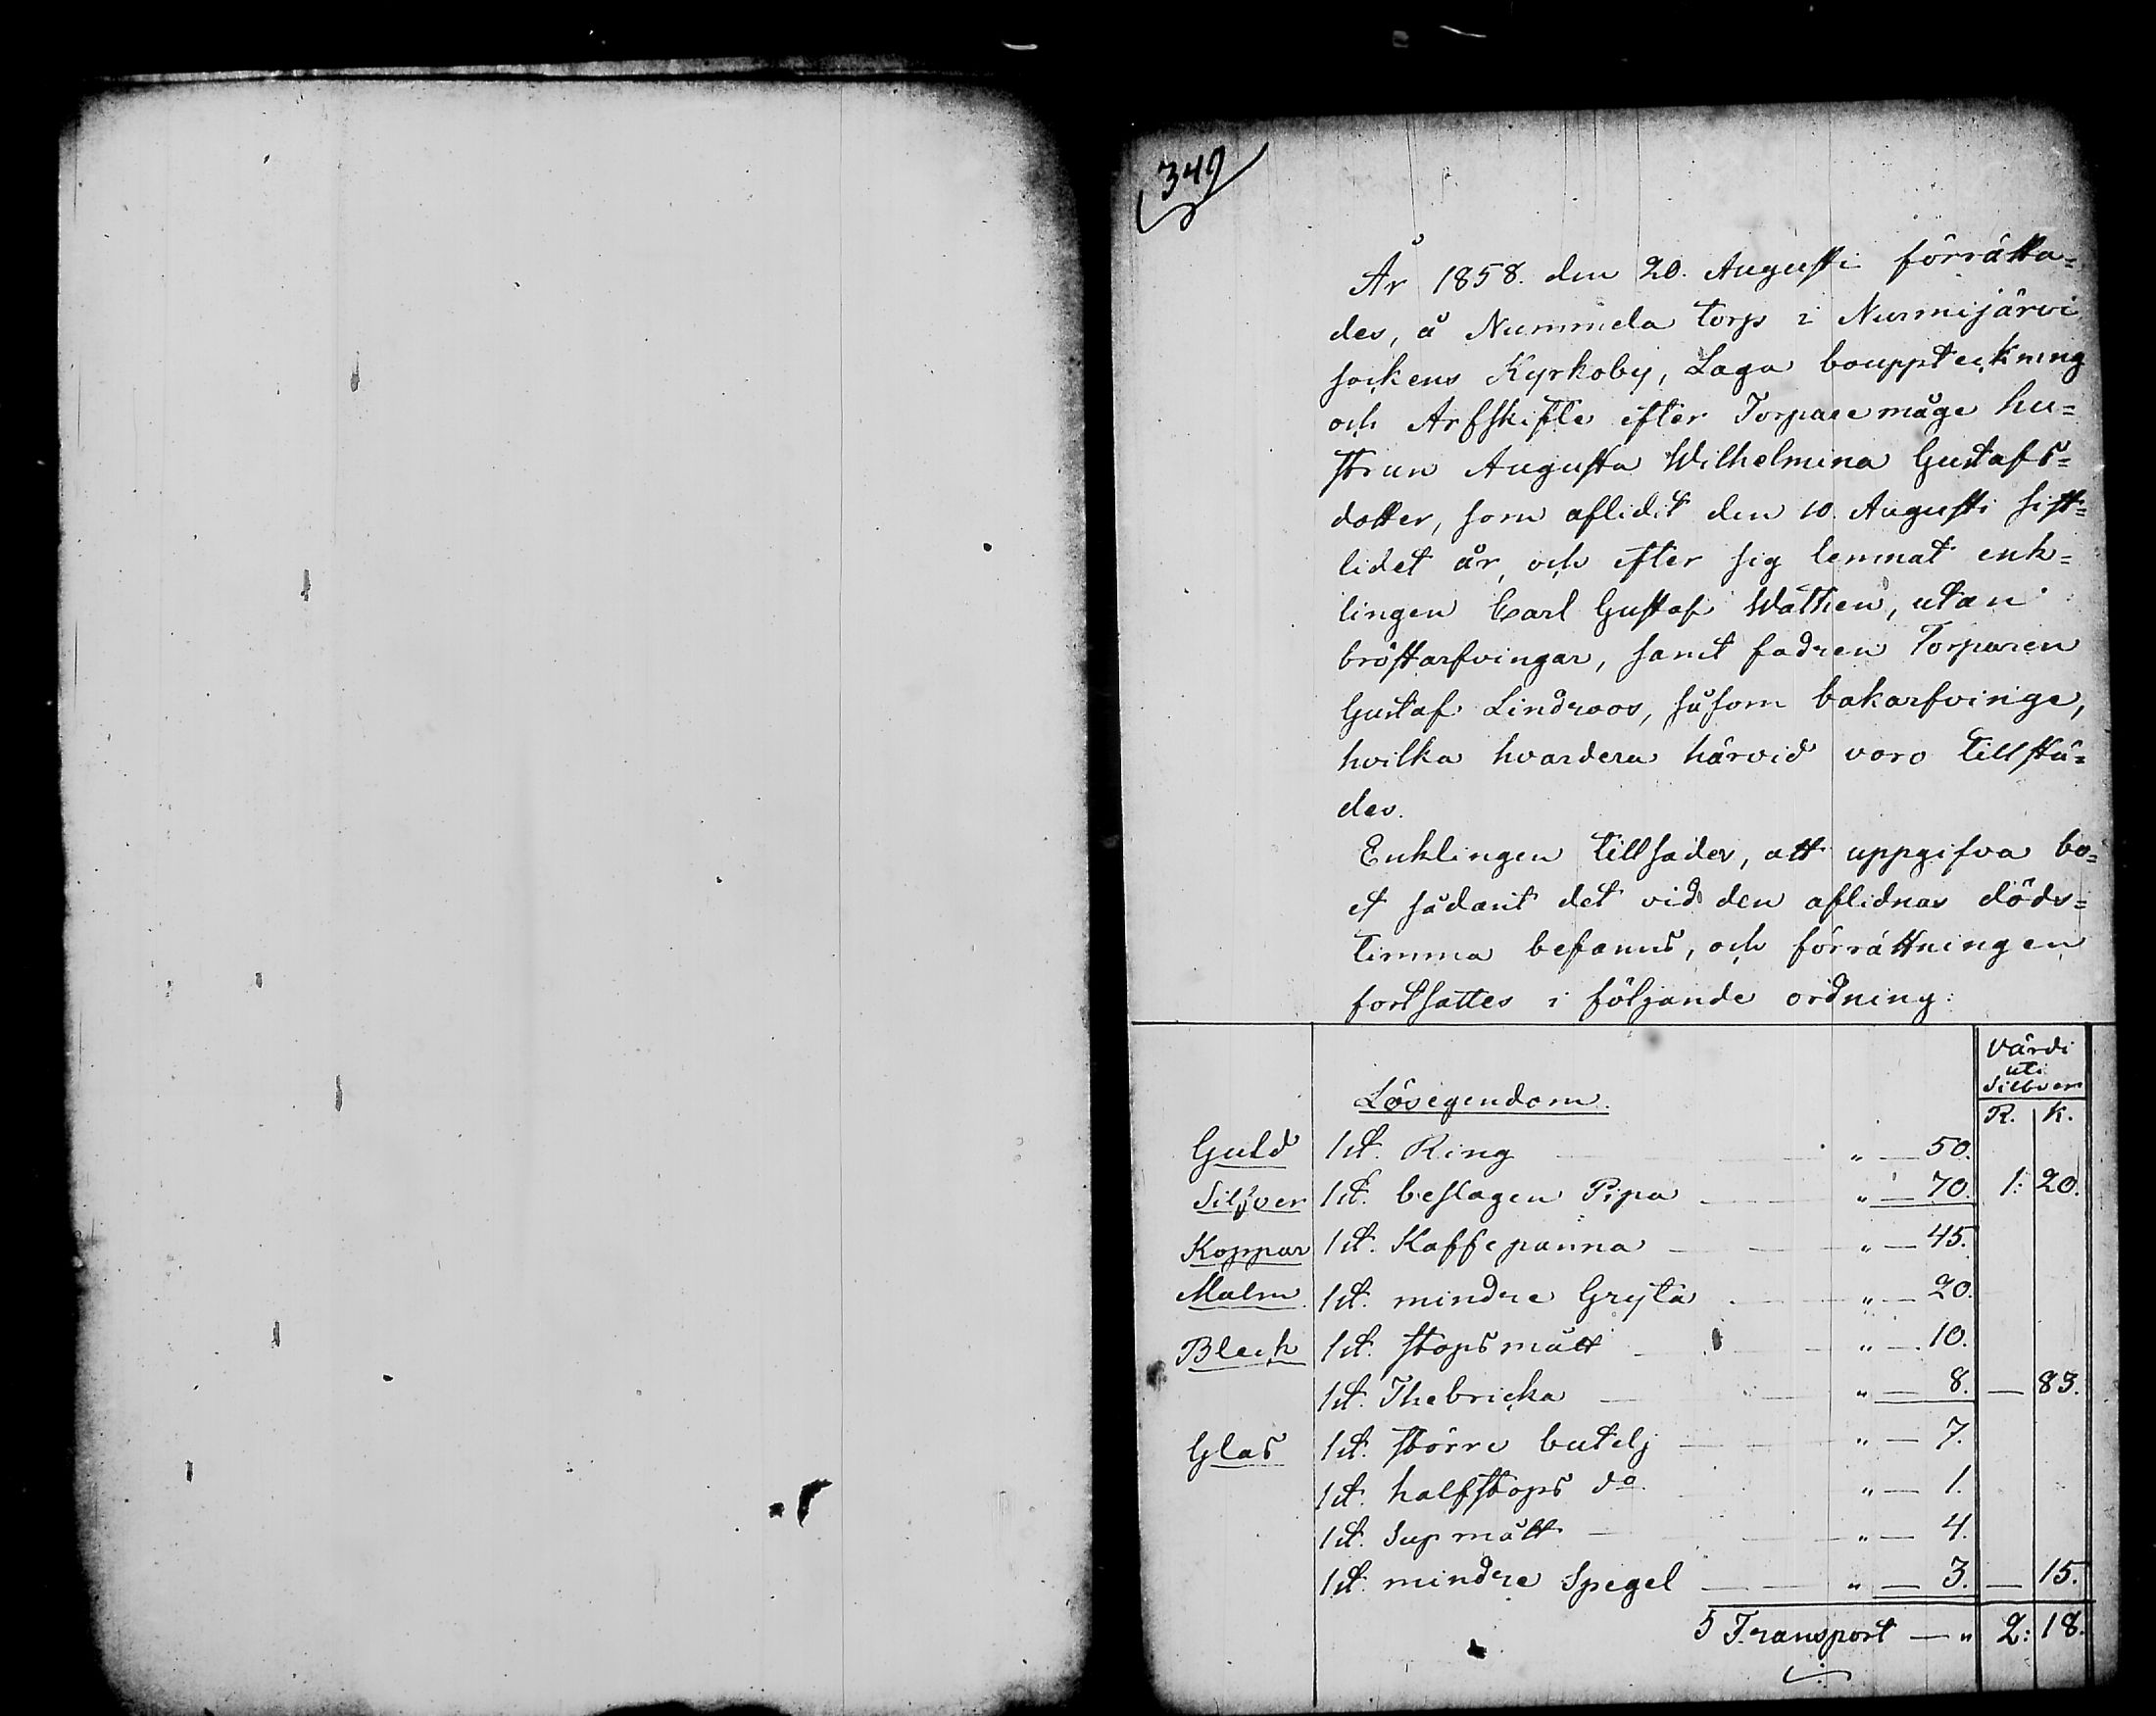 349
År 1858. den 20. Augusti förrätta=
des, å Nummela torp i Nurmijärvi
sockens Kyrkoby, Laga bouppteckning
och Arfskifte efter Torpare måge hu=
strun Augusta Wilhelmina Gustafs=
dotter, som aflidit den 10. Augusti sist=
lidet år, och efter sig lemnat enk=
lingen Carl Gustaf Wathen, utan
bröstarfvingar, samt fadren Torparen
Gustaf Lindroos, såsom bakarfvinge,
hvilka hvardera härvid voro tillstä=
des.
Enklingen tillsades, att uppgifva bo=
et sådant det vid den aflidnas döds=
timma befanns, och förrättningen
fortsattes i följande ordning:
Värdi
uti
Silbver
Lösegendom.
R. K.
Guld 1st. Ring " — 50.
Silfver 1st. beslagen Pipa " — 70. 1: 20.
Koppar 1st. Kaffepanna " — 45.
Malm 1st. mindre Gryta " — 20.
Bleck 1st. stopsmått " — 10.
1st. Thebricka " — 8. — 83.
Glas 1st. större butelj " — 7.
1st. halfstops do " — 1.
1st. Supmått " — 4.
1st. mindre Spegel " — 3. — 15.
5 Transport — " 2: 18.